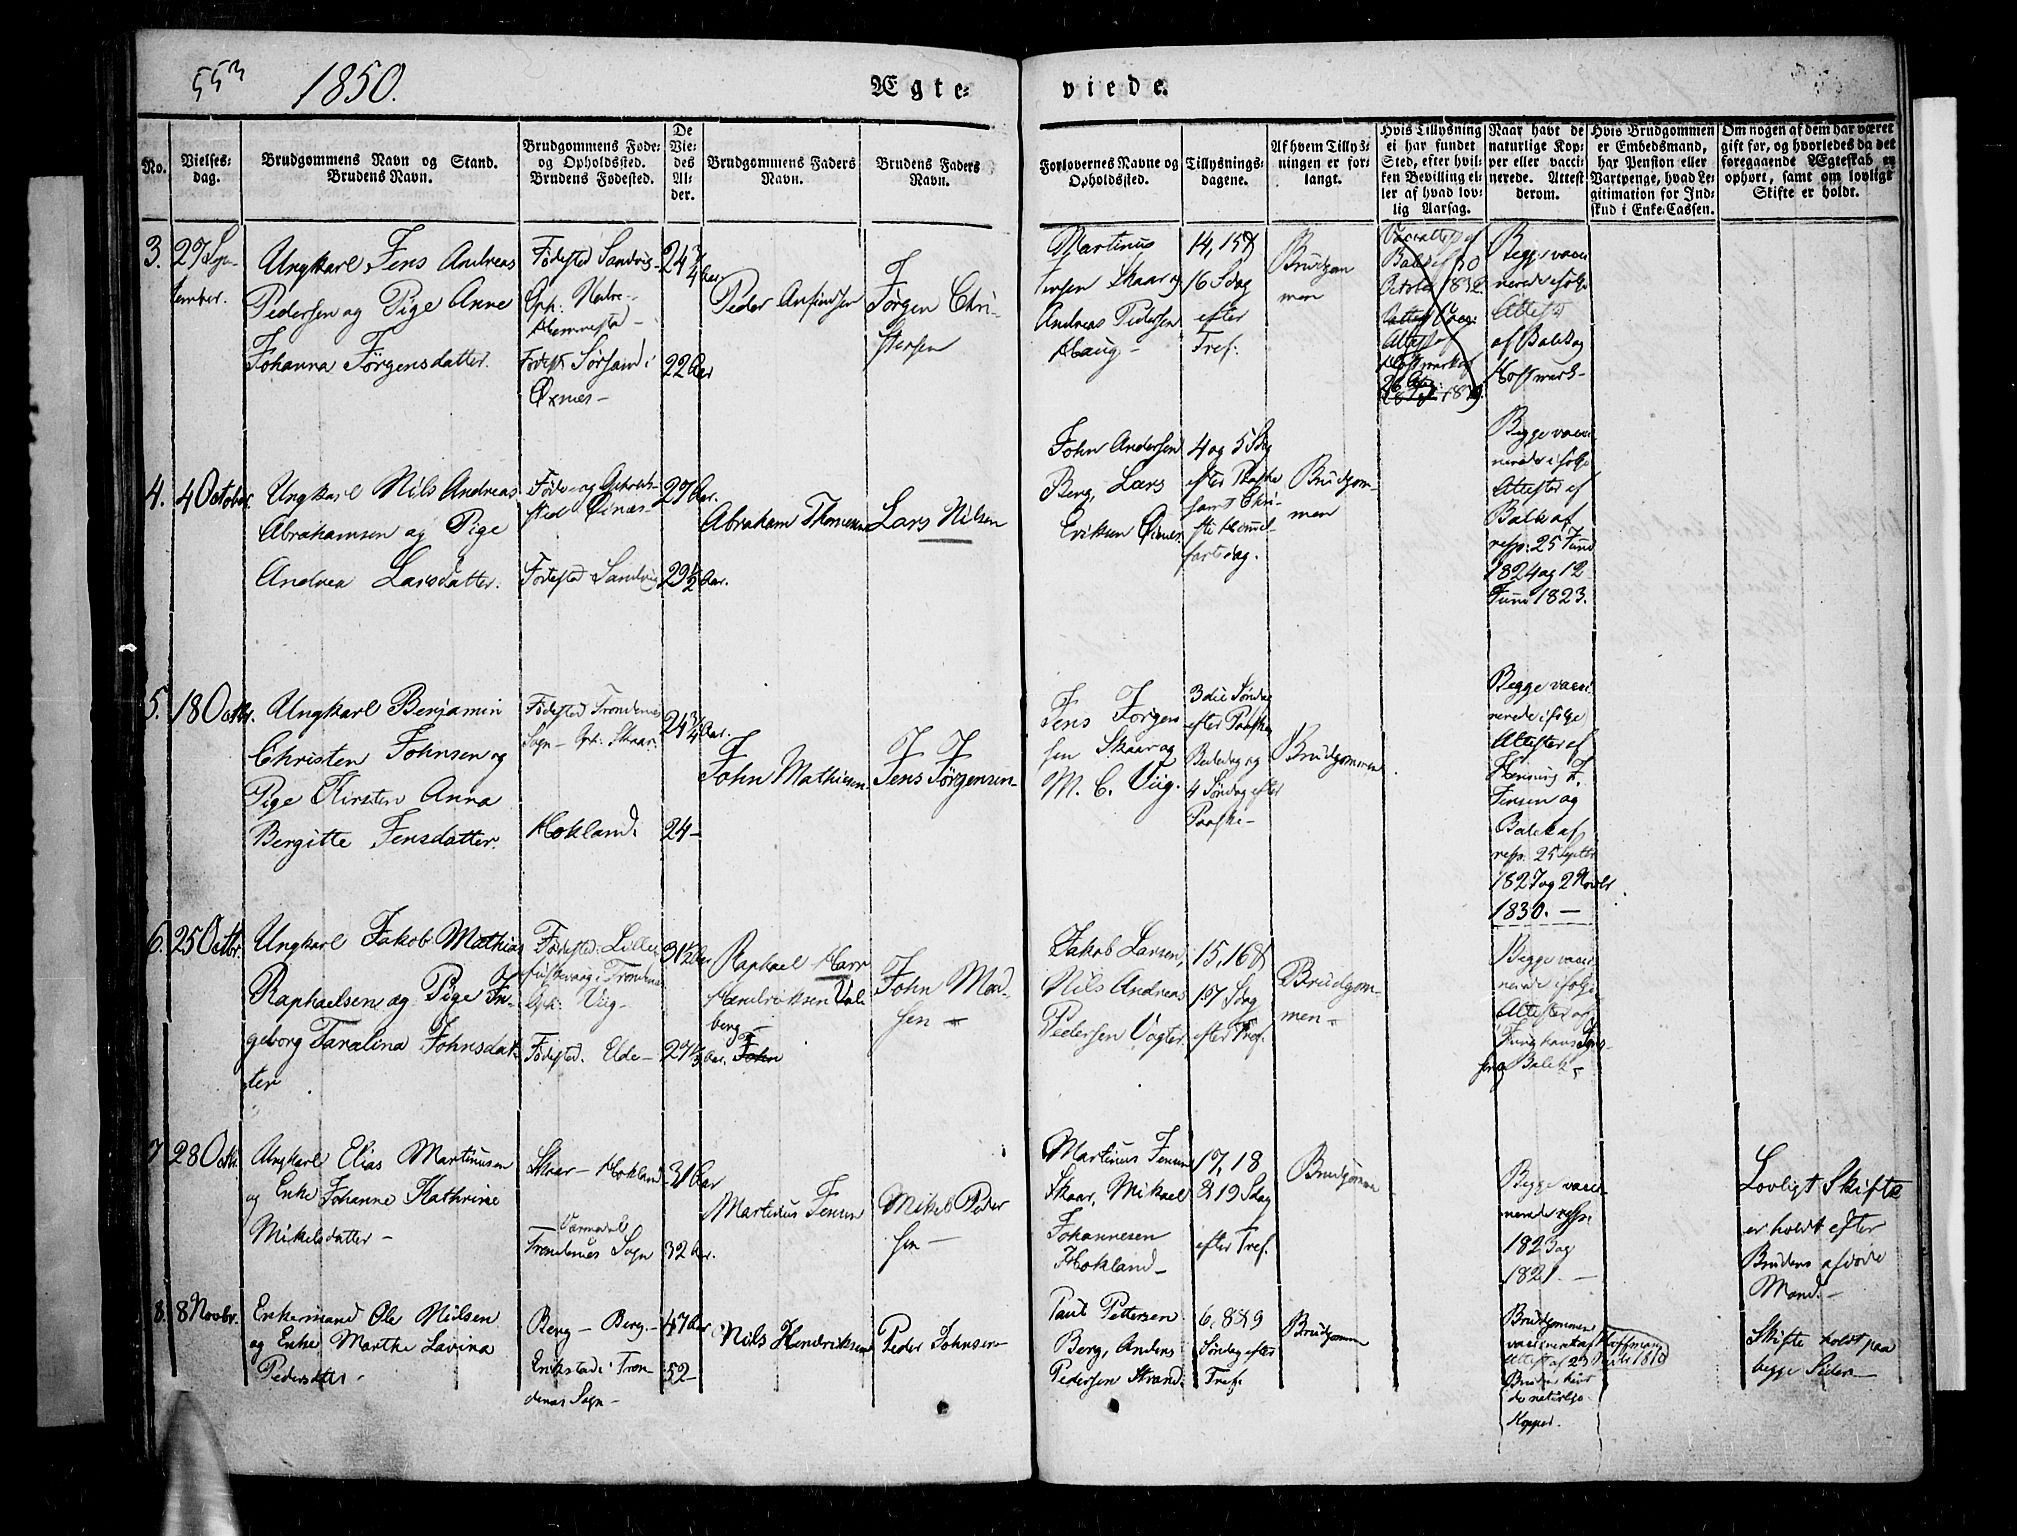 553
1850.
Ægte=
viede.
No.
Vielses=
dag.
Brudgommens Navn og Stand.
Brudens Navn.
Brudgommens Føde=
og Opholdssted.
Brudens Fødested.
De
Vie=
des
Al=
der.
Brudgommens Faders
Navn.
Brudens Faders
Navn.
Forlovernes Navne og
Opholdssted.
Tillysnings=
dagene.
Af hvem Tillys=
ningen er for=
langt.
Hvis Tillysning
ei har fundet
Sted, efter hvil=
ken Bevilling el=
ler af hvad lov=
lig Aarsag.
Naar havt de
naturlige Kop=
per eller vacci=
nerede. Attest
derom.
Hvis Brudgommen
er Embedsmand,
har Pension eller
Vartpenge, hvad Le=
gitimation for Ind=
skud i Enke=Cassen.
Om nogen af dem har været
gift før, og hvorledes da det
foregaaende Ægteskab er
ophørt, samt om lovligt
Skifte er holdt.
3.
27 Sep-
tember.
Ungkarl Jens Andreas
Pedersen og Pige Anne
Johanna Jørgensdatter.
Fødested Sandvig-
Oph: Nedre-
Hemmestad-
Fødest: Sørsand i
Øxnes-
24 3/4 Aar
22 Aar
Peder Anfindsen
Jørgen Chri-
stensen
Martinus
Jensen Skaar og
Andreas Pedersen
Haug-
14, 15 &
16 Sdag
efter
Tref:
Brudgom
men
October 1832.
Begge vacci
nerede ifølge
Attester
af Balk og
Hoffmark-
4.
4 October.
Ungkarl Nils Andreas
Abrahamsen og Pige
Andrea Larsdatter.
sted Øinæs-
Fødested Sandvig
27 Aar.
29 1/2 Aar.
Abraham Thomesen
Lars Nilsen
John Andersen
Berg, Lars
Eriksen Øines
4 og 5 Sdag
efter Paaske
samt Chri-
sti Himmel-
fartsdag.
Brudgom-
men
Begge vacci
nerede ifølge
Attester af
Balk af
resp: 25 Juni
1824 og 12
Juni 1823.
5.
18 Octbr.
Ungkarl Benjamin
Christen Johnsen og
Pige Kirsten Anna
Bergitte Jensdatter.
Fødested Trondenes
Sogn- Oph: Skaar.
Hokland.
24 3/4 Aar.
24-
John Mathisen.
Jens Jørgensen-
Jens Jørgen
sen Skaar og
M. C. Viig.
3die Søndag
efter Paaske
Bededag og
4 Søndag efter
Paaske-
Brudgommen
Begge vacci
nerede ifølge
Attester af
Henning J.
Jensen og
Balk af
resp. 25 Septbr
1827 og 2 Novbr
1830.-
6.
25 Octbr.
Ungkarl Jakob Mathias
Raphaelsen og Pige In-
geborg Taralina Johnsdat-
ter
Oph: Viig-
Fødested. Elde-
31 1/2 Aar
Raphael
Hendriksen Val-
berg-
John
John Mad-
sen-
Jakob Larsen,
Nils Andreas
Pedersen Vogter
15, 16 &
17 Sdag
efter Tref.
Brudgom-
men-
Begge vacci
nerede ifølge
Attester af
7
28 Octb.
Ungkarl Elias Martinusen
og Enke Johanne Kathrine
Mikelsdatter-
Skaar- Hokland
Trondenes Sogn
31 Aar
32 Aar.
Martinus Jensen
Mikel Peder
sen-
Martinus Jensen
Skaar, Mikael
Johannesen
Hokland-
17, 18
& 19 Sdag
efter Tref.
Brudgommen
Begge vacci-
nerede resp.
1823 og
1821.-
Lovligt Skifte
er holdt efter
Brudens afdøde
Mand.-
8.
8 Novbr.
Enkemand Ole Nilsen
og Enke Marthe Lavina
Pedersdatter-
Berg- Berg.-
Erikstad i Tron
denes Sogn-
47 Aar
52-
Nils Hendriksen
Peder Johnsen-
Paul Pettersen
Berg, Anders
Pedersen Strand.
6, 8 & 9
Søndag efter
Tref:
Brudgommen
Brudgommen
Attest af 23
Bruden havt
de naturlige
Kopper.
Skifte holdt paa
begge Sider-